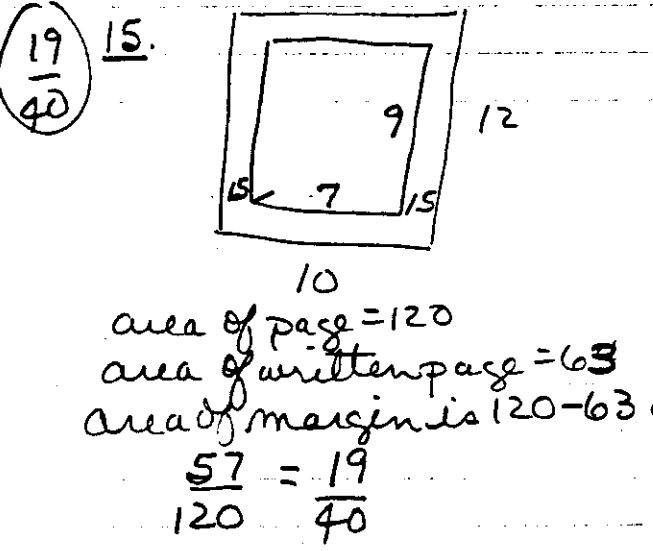 19/40 15.
9 12
15 7 15
10
area of page = 120
area of written page = 63
area of margin is 120-63
57/120 = 19/40